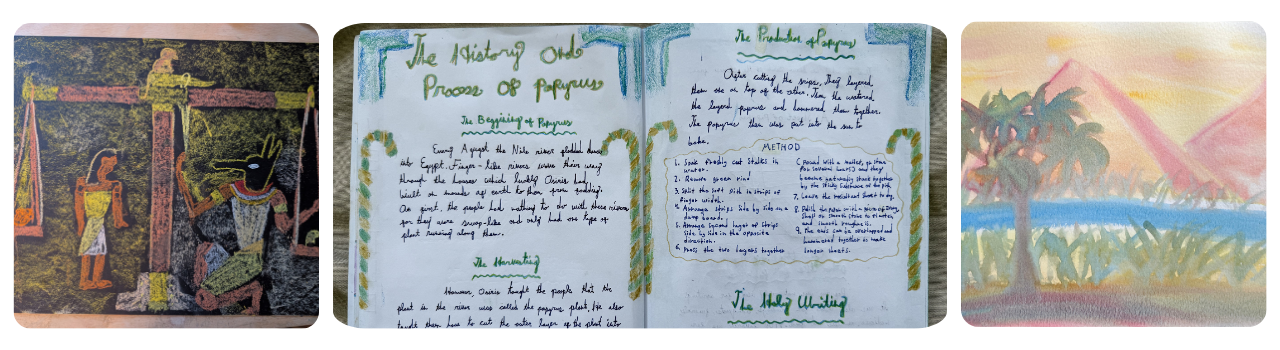 The History And
Process Of Papyrus
The Beggining of Papyrus
Every August the Nile river flodded down
into Egypt. Finger-like rivers wove their way
through the houses which luckly Osiris had
built on mounds of earth to them from flodding.
At first, the people had nothing to do with these rivers
for they were swamp-like and only had one type of
plant running along them.
The Harvesting
However, Osiris taught the people that the
plant in the river was called the papyrus plant. He also
taught them how to cut the outer layer of the plant into
The Production of Papyrus
After cutting the strips, They layered
them one on top of the other. Then the watered
the layed papyrus and hammered them together.
The papyrus then was put into the sun to
bake.
METHOD
1. Soak freshly cut stalks in
water.
2. Remove green rind
3. Split the soft pith in strips of
finger width.
4. Arrange strips side by side on a
damp board.
5. Arrange second layer of strips
side by side in the opposite
direction.
6. Press the two layers together
(Pound with a mallet, go stone
for several hours) and they
become naturally stuck together
by the sticky substance of the pith.
7. Leave the resultant sheet to dry.
8. Polish the paper with a piece of ivory,
shell or smooth stone to flatten
and smooth roughness.
9. The ends can be overlapped and
hammered together to make
longer sheets.
The Holy Writing